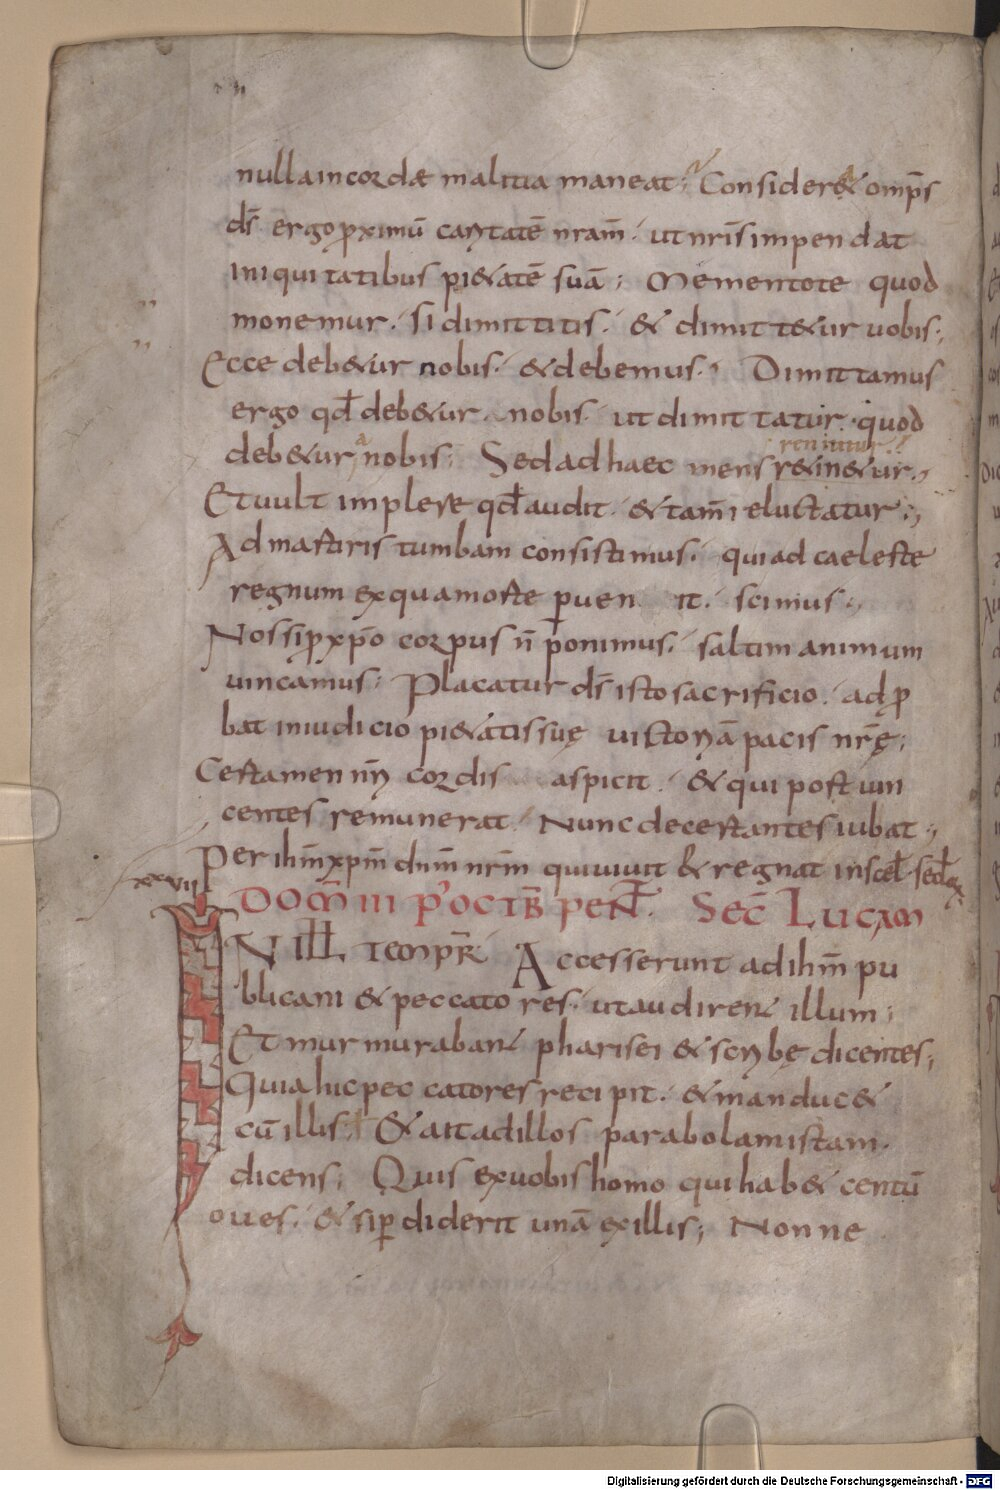 nulla in cordae malitia maneat; Consideret omp̄s
d̄s ergo ꝓximū caritatē nram̄· ut nris̄ impendat
iniquitatibus pi&atē suā; Mementote quod
monemur· si dimittitis· & dimitt&ur uobis;
Ecce deb&ur nobis· & debemus· Dimittamus
ergo qd̄ deb&ur nobis· ut dimittatur quod
deb&ur a nobis; Sed ad haec mens r&in&ur·
renititur
Et uult implere qd̄ audit· & tam̄ reluctatur;
Ad martiris tumbam consistimus· qui ad caeleste
regnum ex qua morte ꝑuenit· scimus·
Nos si ꝓ xp̄o corpus n̄ ponimus· saltim animum
uincamus; Placatur d̄s isto sacrificio· adꝓ
bat in iudicio pi&atis suę uictoriā pacis nrę̄;
Certamen nr̄i cordis aspicit· & qui post uin
centes remunerat· Nunc decertantes iubat·
Per ihm̄ xpm̄ dnm̄ nrm̄ qui uiuit & regnat in scl̄a sclōꝝ
xxxvii
DOM̄ III P' OCTB̄ PEN̄T· Sec̄ Lucam
IN ILL TEMPR̄· Accesserunt ad ihm̄ pu
blicani & peccatores· ut audirent illum;
Et murmurabant pharisei & scribę dicentes;
Quia hic peccatores recipit· & manduc&
cū illis; & ait ad illos parabolam istam·
dicens; Quis ex uobis homo qui hab& centū
oues· & si ꝑdiderit unā ex illis; Nonne
Digitalisierung gefördert durch die Deutsche Forschungsgemeinschaft - DFG